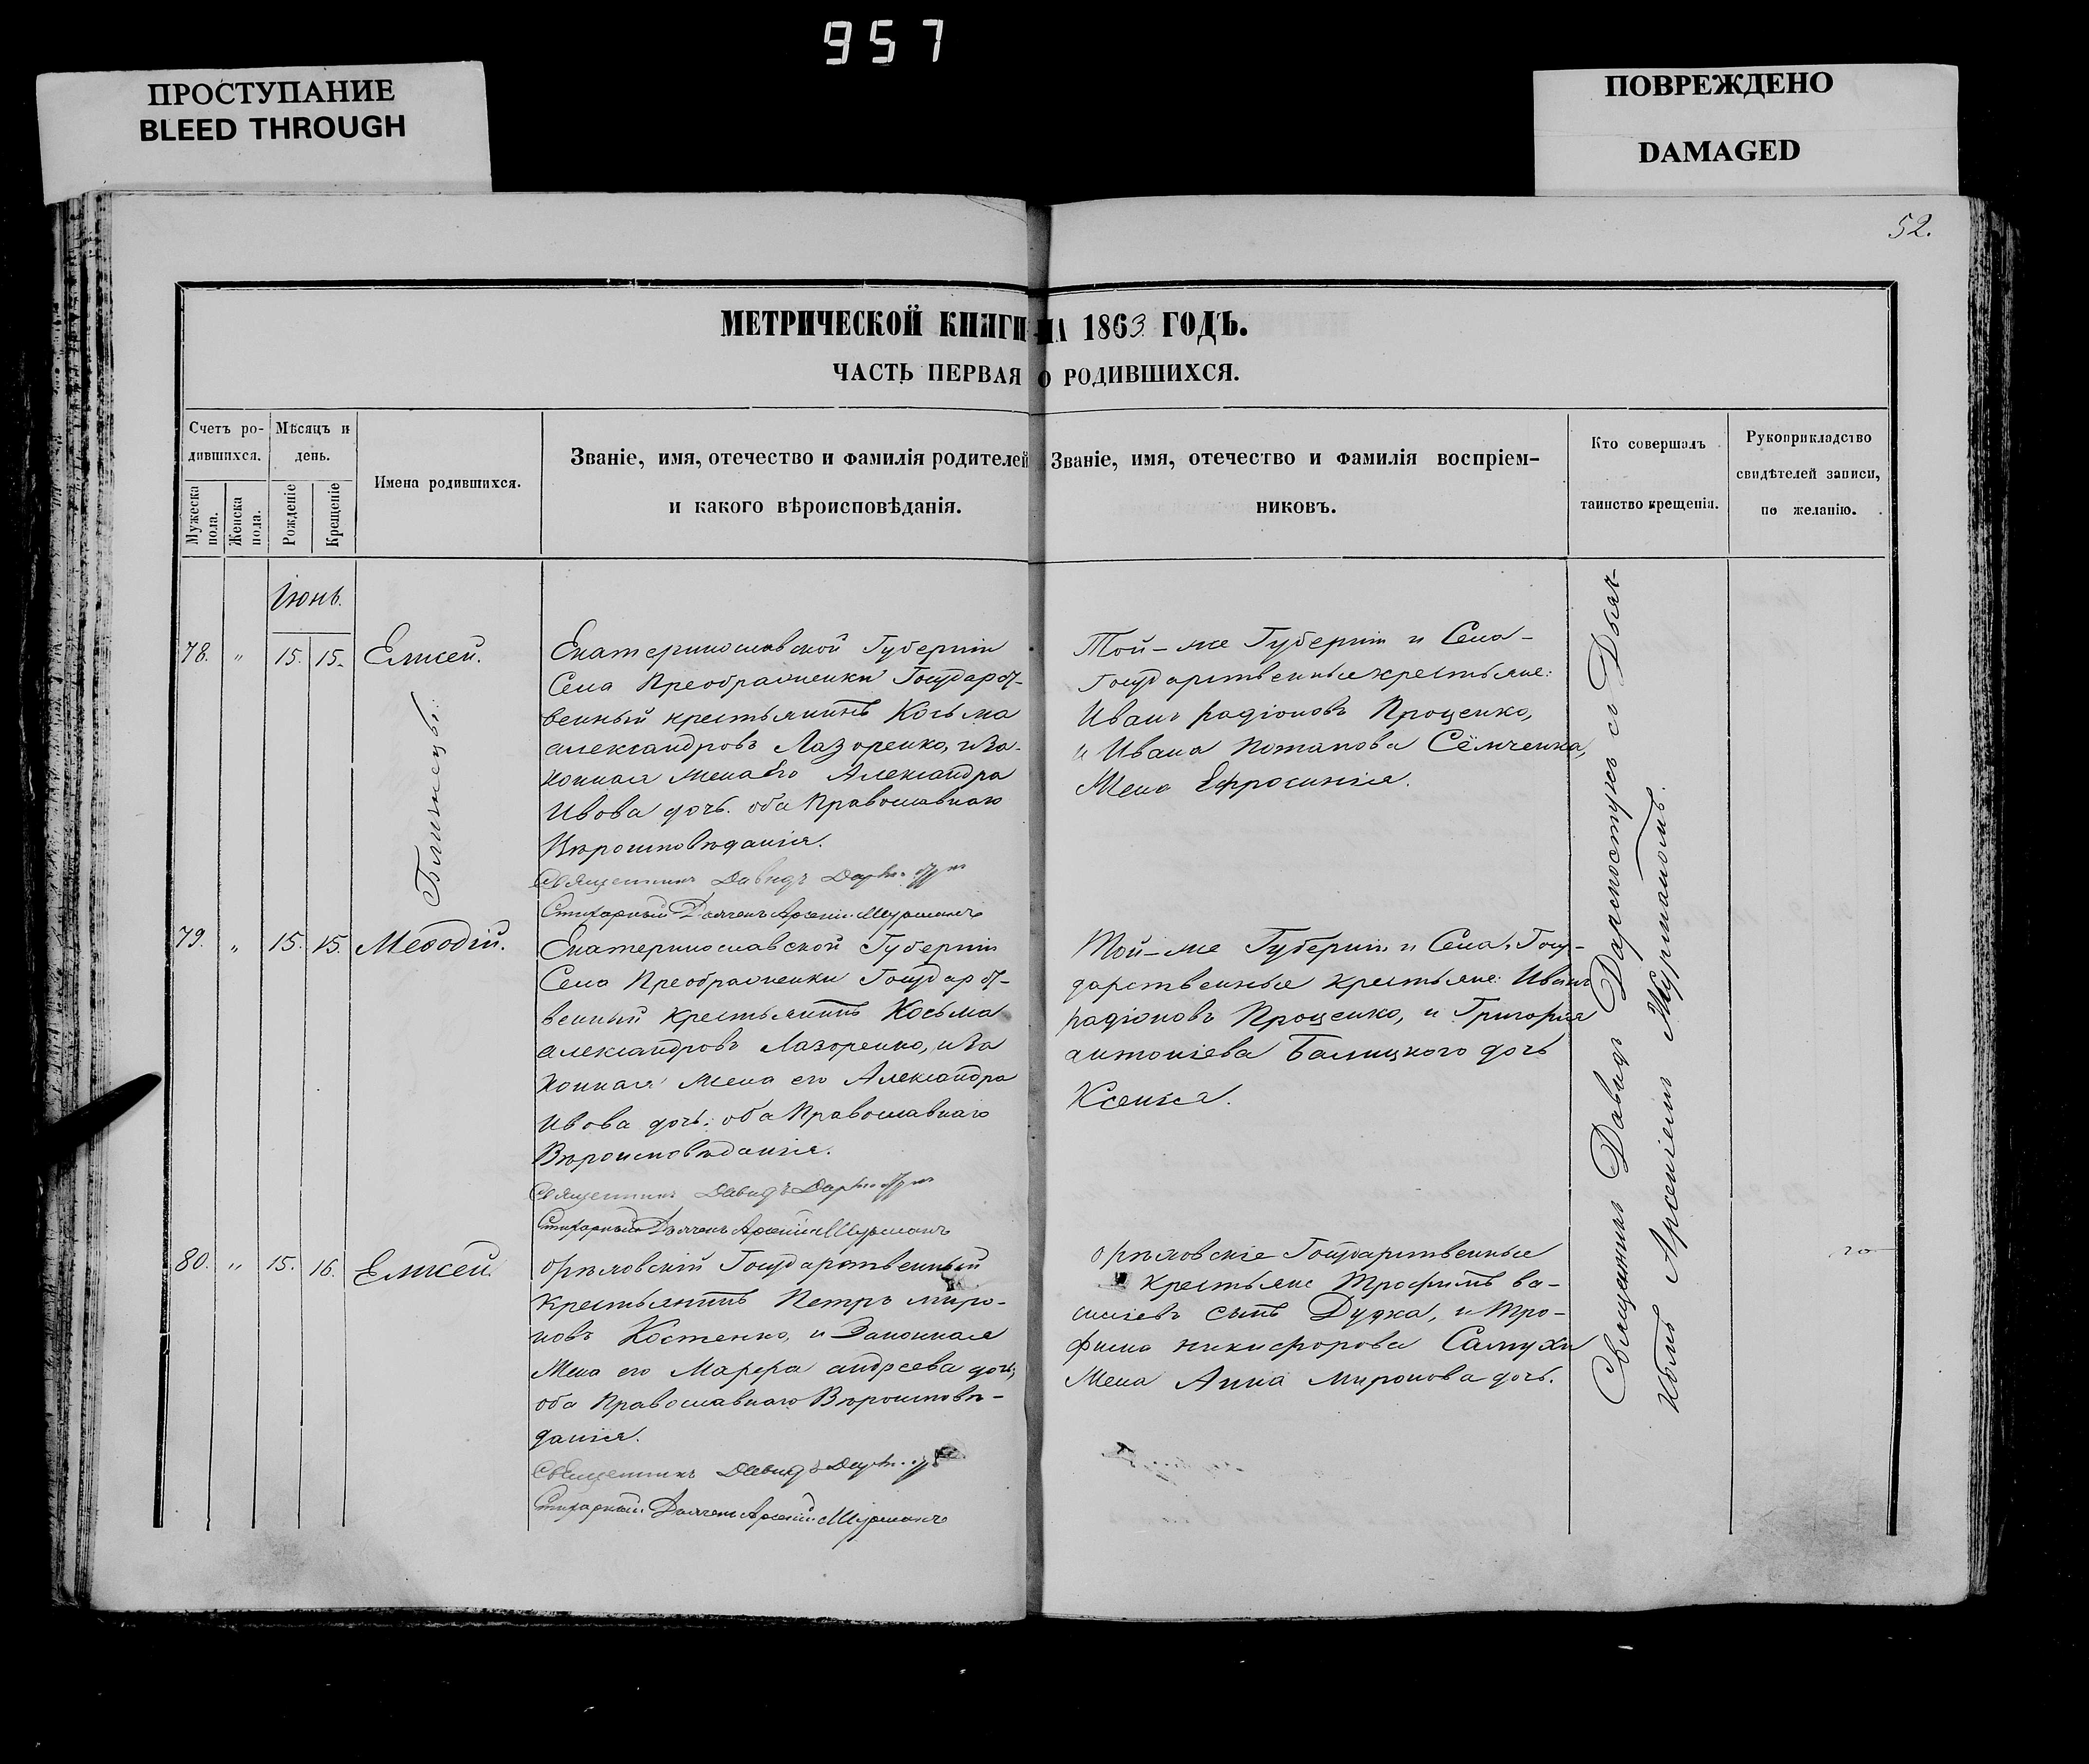 957
ПРОСТУПАНИЕ
BLEED THROUGH
ПОВРЕЖДЕНО
DAMAGED
52.
МЕТРИЧЕСКОЙ КНИГИ НА 1863 ГОДЪ.
ЧАСТЬ ПЕРВАЯ О РОДИВШИХСЯ.
Счетъ ро-
дившихся.
Мужеска
пола.
Женска
пола.
Мѣсяцъ и
день.
Рожденіе
Крещеніе
Имена родившихся.
Званіе, имя, отечество и фамилія родителей
и какого вѣроисповѣданія.
Званіе, имя, отечество и фамилія воспріем-
никовъ.
Кто совершалъ
таинство крещенія.
Рукоприкладство
свидѣтелей записи,
по желанію.
Іюнь.
78. " 15. 15. Елисей.
Близнецы:
Екатеринославской Губерніи
Села Преображенки Государст-
венный крестьянинъ Косьма
александровъ Лазоренко, и за-
конная жена его Александра
Ивова дочь. оба Православнаго
Вѣроисповѣданія.
Священникъ Давидъ
Стихарный Дьячекъ Арсеній Журманъ
Той-же Губерніи и Села-
Государственные крестьяне:
Иванъ радіоновъ Проценко,
и Ивана Потапова Сёмченка,
Жена Ефросинія.
79. " 15. 15. Меѳодій.
Екатеринославской Губерніи
Села Преображенки Государст-
венный Крестьянинъ Косьма
александровъ Лазоренко, и за
конная жена его Александра
Ивова дочь: оба Православнаго
Вѣроисповѣданія.
Священникъ Давидъ
Стихарный Дьячекъ Арсеній Журманъ
Той-же Губерніи и Села, Госу-
дарственные крестьяне: Иванъ
радіоновъ Проценко, и Григорія
антоніева Балицкого дочь
Ксенія.
80. " 15. 16. Елисей.
орѣловскій Государственный
Крестьянинъ Петръ миро-
новъ Костенко, и Законная
Жена его Марфа андреева дочь,
оба Православнаго Вѣроисповѣ-
данія.
Священникъ Давидъ
Стихарный Дьячекъ Арсеній Журманъ
орѣловскіе Государственные
Крестьяне Трофимъ ва-
силіевъ сынъ Дудка, и Тро-
фима никифорова Сапухи
Жена Анна миронова дочь.
Священникъ Давидъ Дарностукъ съ Дьяч-
комъ Арсеніемъ Журманомъ.